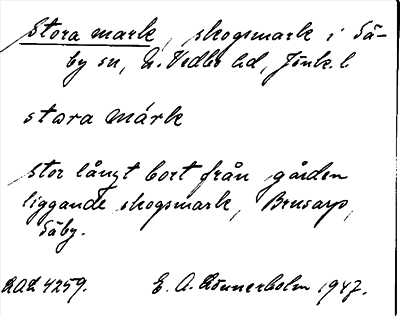 Stora mark, skogsmark i Sä-
by sn, N. Vedbo hd, Jönk. l
stora márk
stor långt bort från gården
liggande skogsmark, Brusarp,
Säby.
RAÄ 4259. E. A. Rönnerholm 1947.